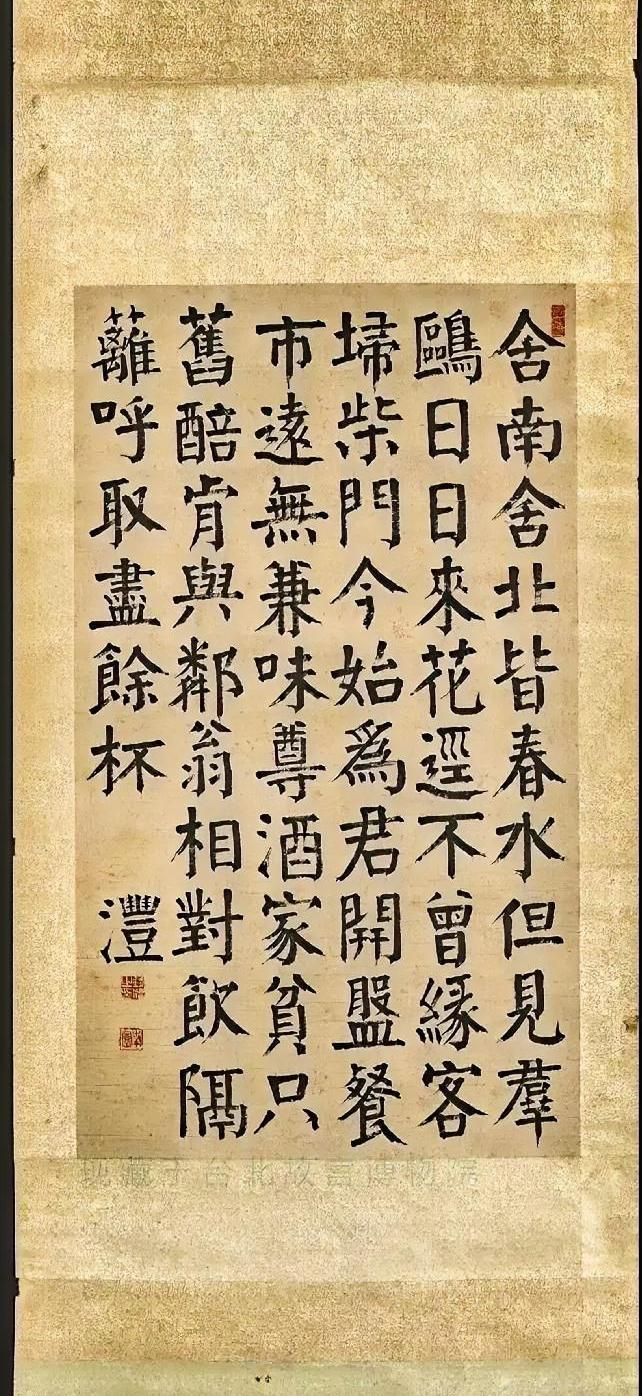 舍南舍北皆春水但見羣
鷗日日來花逕不曾緣客
埽柴門今始爲君開盤餐
市遠無兼味尊酒家貧只
舊醅肯與鄰翁相對飲隔
蘺呼取盡餘杯
灃
现藏于台北故宫博物院